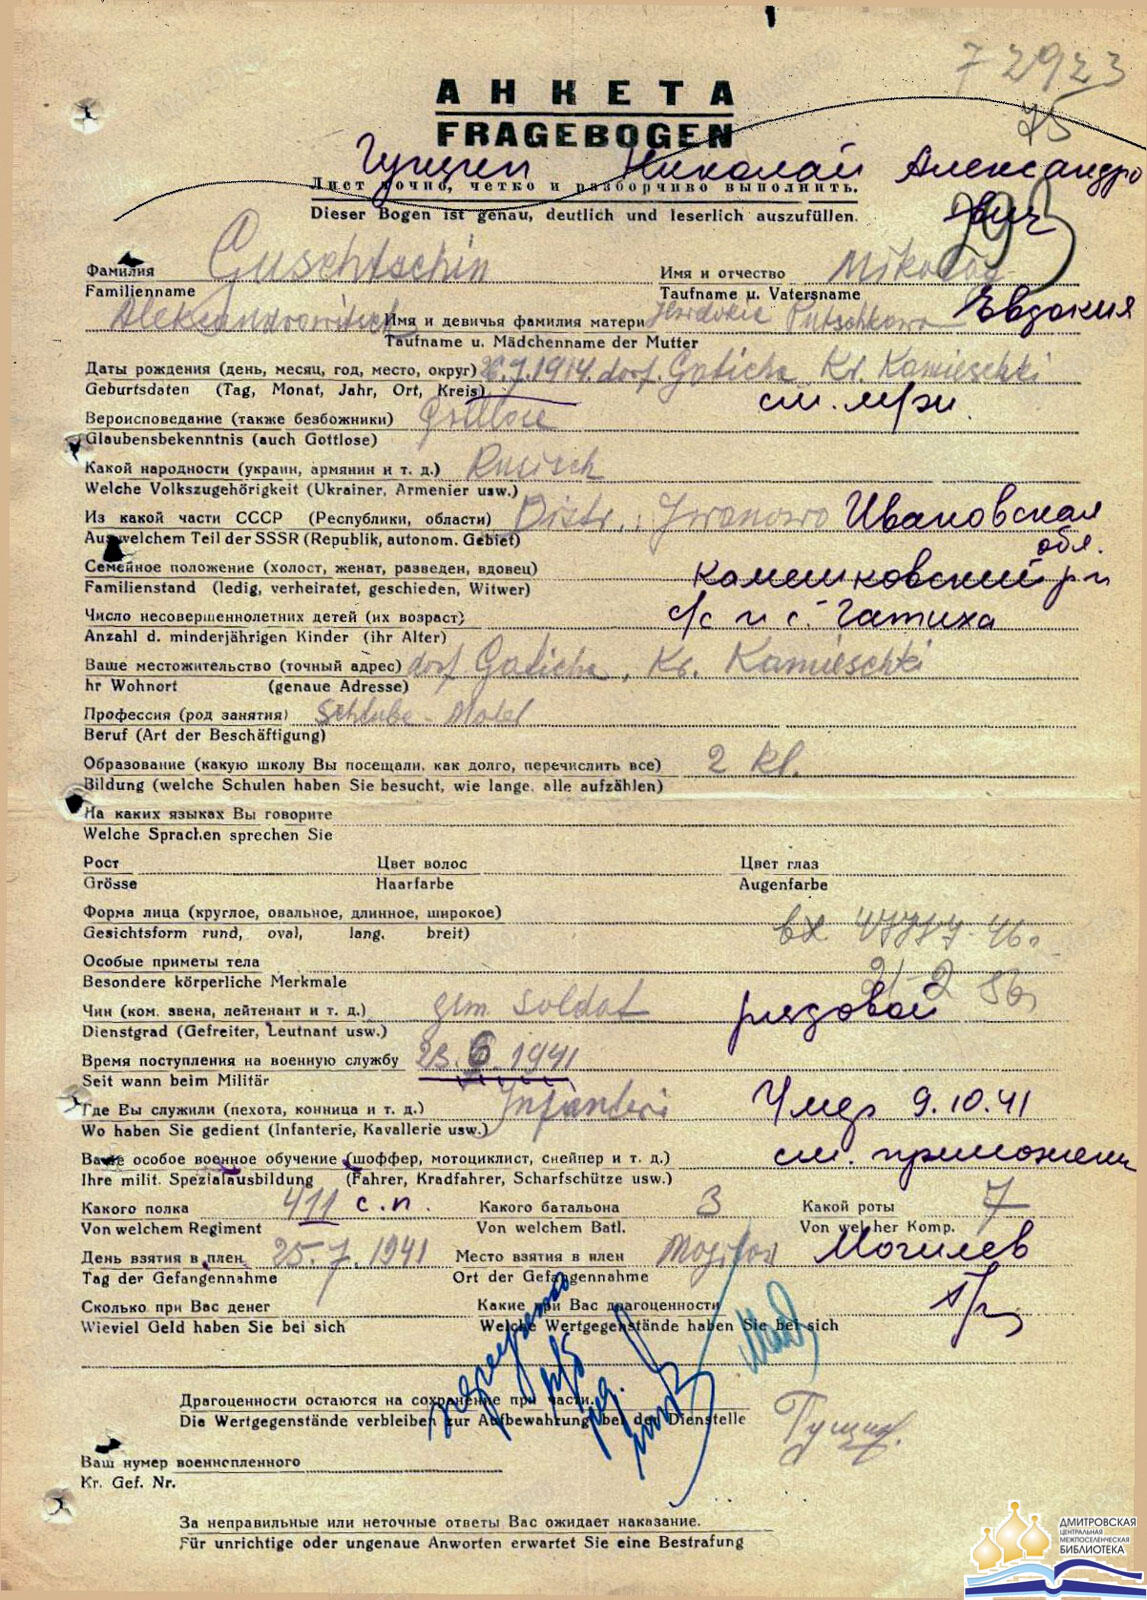 7 2923
75
АНКЕТА
FRAGEBOGEN
Гущин Николай Александро
вич
Лист точно, четко и разборчиво выполнить.
Dieser Bogen ist genau, deutlich und leserlich auszufüllen.
293
Фамилия Guschtschin Имя и отчество Nikolay
Familienname Taufname u. Vatersname
Aleksandrowitsch Имя и девичья фамилия матери Putschkowa Евдокия
Taufname u. Mädchenname der Mutter
Даты рождения (день, месяц, год, место, округ) 26.7.1914. dorf. Gaticha Kr. Kamieschki
Geburtsdaten (Tag, Monat, Jahr, Ort, Kreis) см. при.
Вероисповедание (также безбожники) Gottlose
Glaubensbekenntnis (auch Gottlose)
Какой народности (украин, армянин и т. д.) Rusisch
Welche Volkszugehörigkeit (Ukrainer, Armenier usw.)
Из какой части СССР (Республики, области) Distr.: Iwanowo Ивановская
Aus welchem Teil der SSSR (Republik, autonom. Gebiet) обл.
Семейное положение (холост, женат, разведен, вдовец) Камешковский р-н
Familienstand (ledig, verheiratet, geschieden, Witwer)
Число несовершеннолетних детей (их возраст) с/с и с. Гатиха
Anzahl d. minderjährigen Kinder (ihr Alter)
Ваше местожительство (точный адрес) dorf Gaticha, Kr. Kamieschki
hr Wohnort (genaue Adresse)
Профессия (род занятия)
Beruf (Art der Beschäftigung)
Образование (какую школу Вы посещали, как долго, перечислить все) 2 Kl.
Bildung (welche Schulen haben Sie besucht, wie lange, alle aufzählen)
На каких языках Вы говорите
Welche Sprachen sprechen Sie
Рост Цвет волос Цвет глаз
Grösse Haarfarbe Augenfarbe
Форма лица (круглое, овальное, длинное, широкое)
Gesichtsform rund, oval, lang, breit)
Особые приметы тела
Besondere körperliche Merkmale
Чин (ком. звена, лейтенант и т. д.) gem soldat рядовой
Dienstgrad (Gefreiter, Leutnant usw.)
Время поступления на военную службу 23.6.1941
Seit wann beim Militär
Где Вы служили (пехота, конница и т. д.) Infanteri Умер 9.10.41
Wo haben Sie gedient (Infanterie, Kavallerie usw.)
Ваше особое военное обучение (шоффер, мотоциклист, снейпер и т. д.) см. приложение
Ihre milit. Spezialausbildung (Fahrer, Kradfahrer, Scharfschütze usw.)
Какого полка 411 с.п. Какого батальона 3 Какой роты 7
Von welchem Regiment Von welchem Batl. Von welcher Komp.
День взятия в плен 25.7.1941 Место взятия в плен Mogilow Могилев
Tag der Gefangennahme Ort der Gefangennahme
Сколько при Вас денег Какие при Вас драгоценности
Wieviel Geld haben Sie bei sich Welche Wertgegenstände haben Sie bei sich
Драгоценности остаются на сохранение при части.
Die Wertgegenstände verbleiben zur Aufbewahrung bei der Dienstelle
Гущин.
Ваш нумер военнопленного
Kr. Gef. Nr.
За неправильные или неточные ответы Вас ожидает наказание.
Für unrichtige oder ungenaue Anworten erwartet Sie eine Bestrafung
ДМИТРОВСКАЯ
ЦЕНТРАЛЬНАЯ
МЕЖПОСЕЛЕНЧЕСКАЯ
БИБЛИОТЕКА